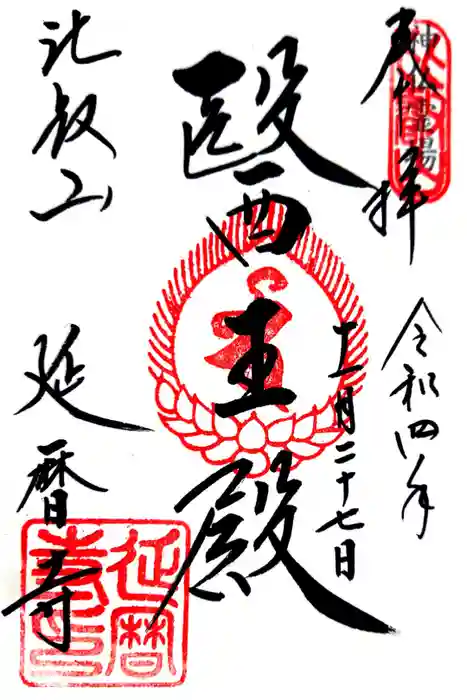 奉拝
令和四年
十一月二十七日
醫王殿
比叡山
延暦寺
神仏霊場
延暦寺印